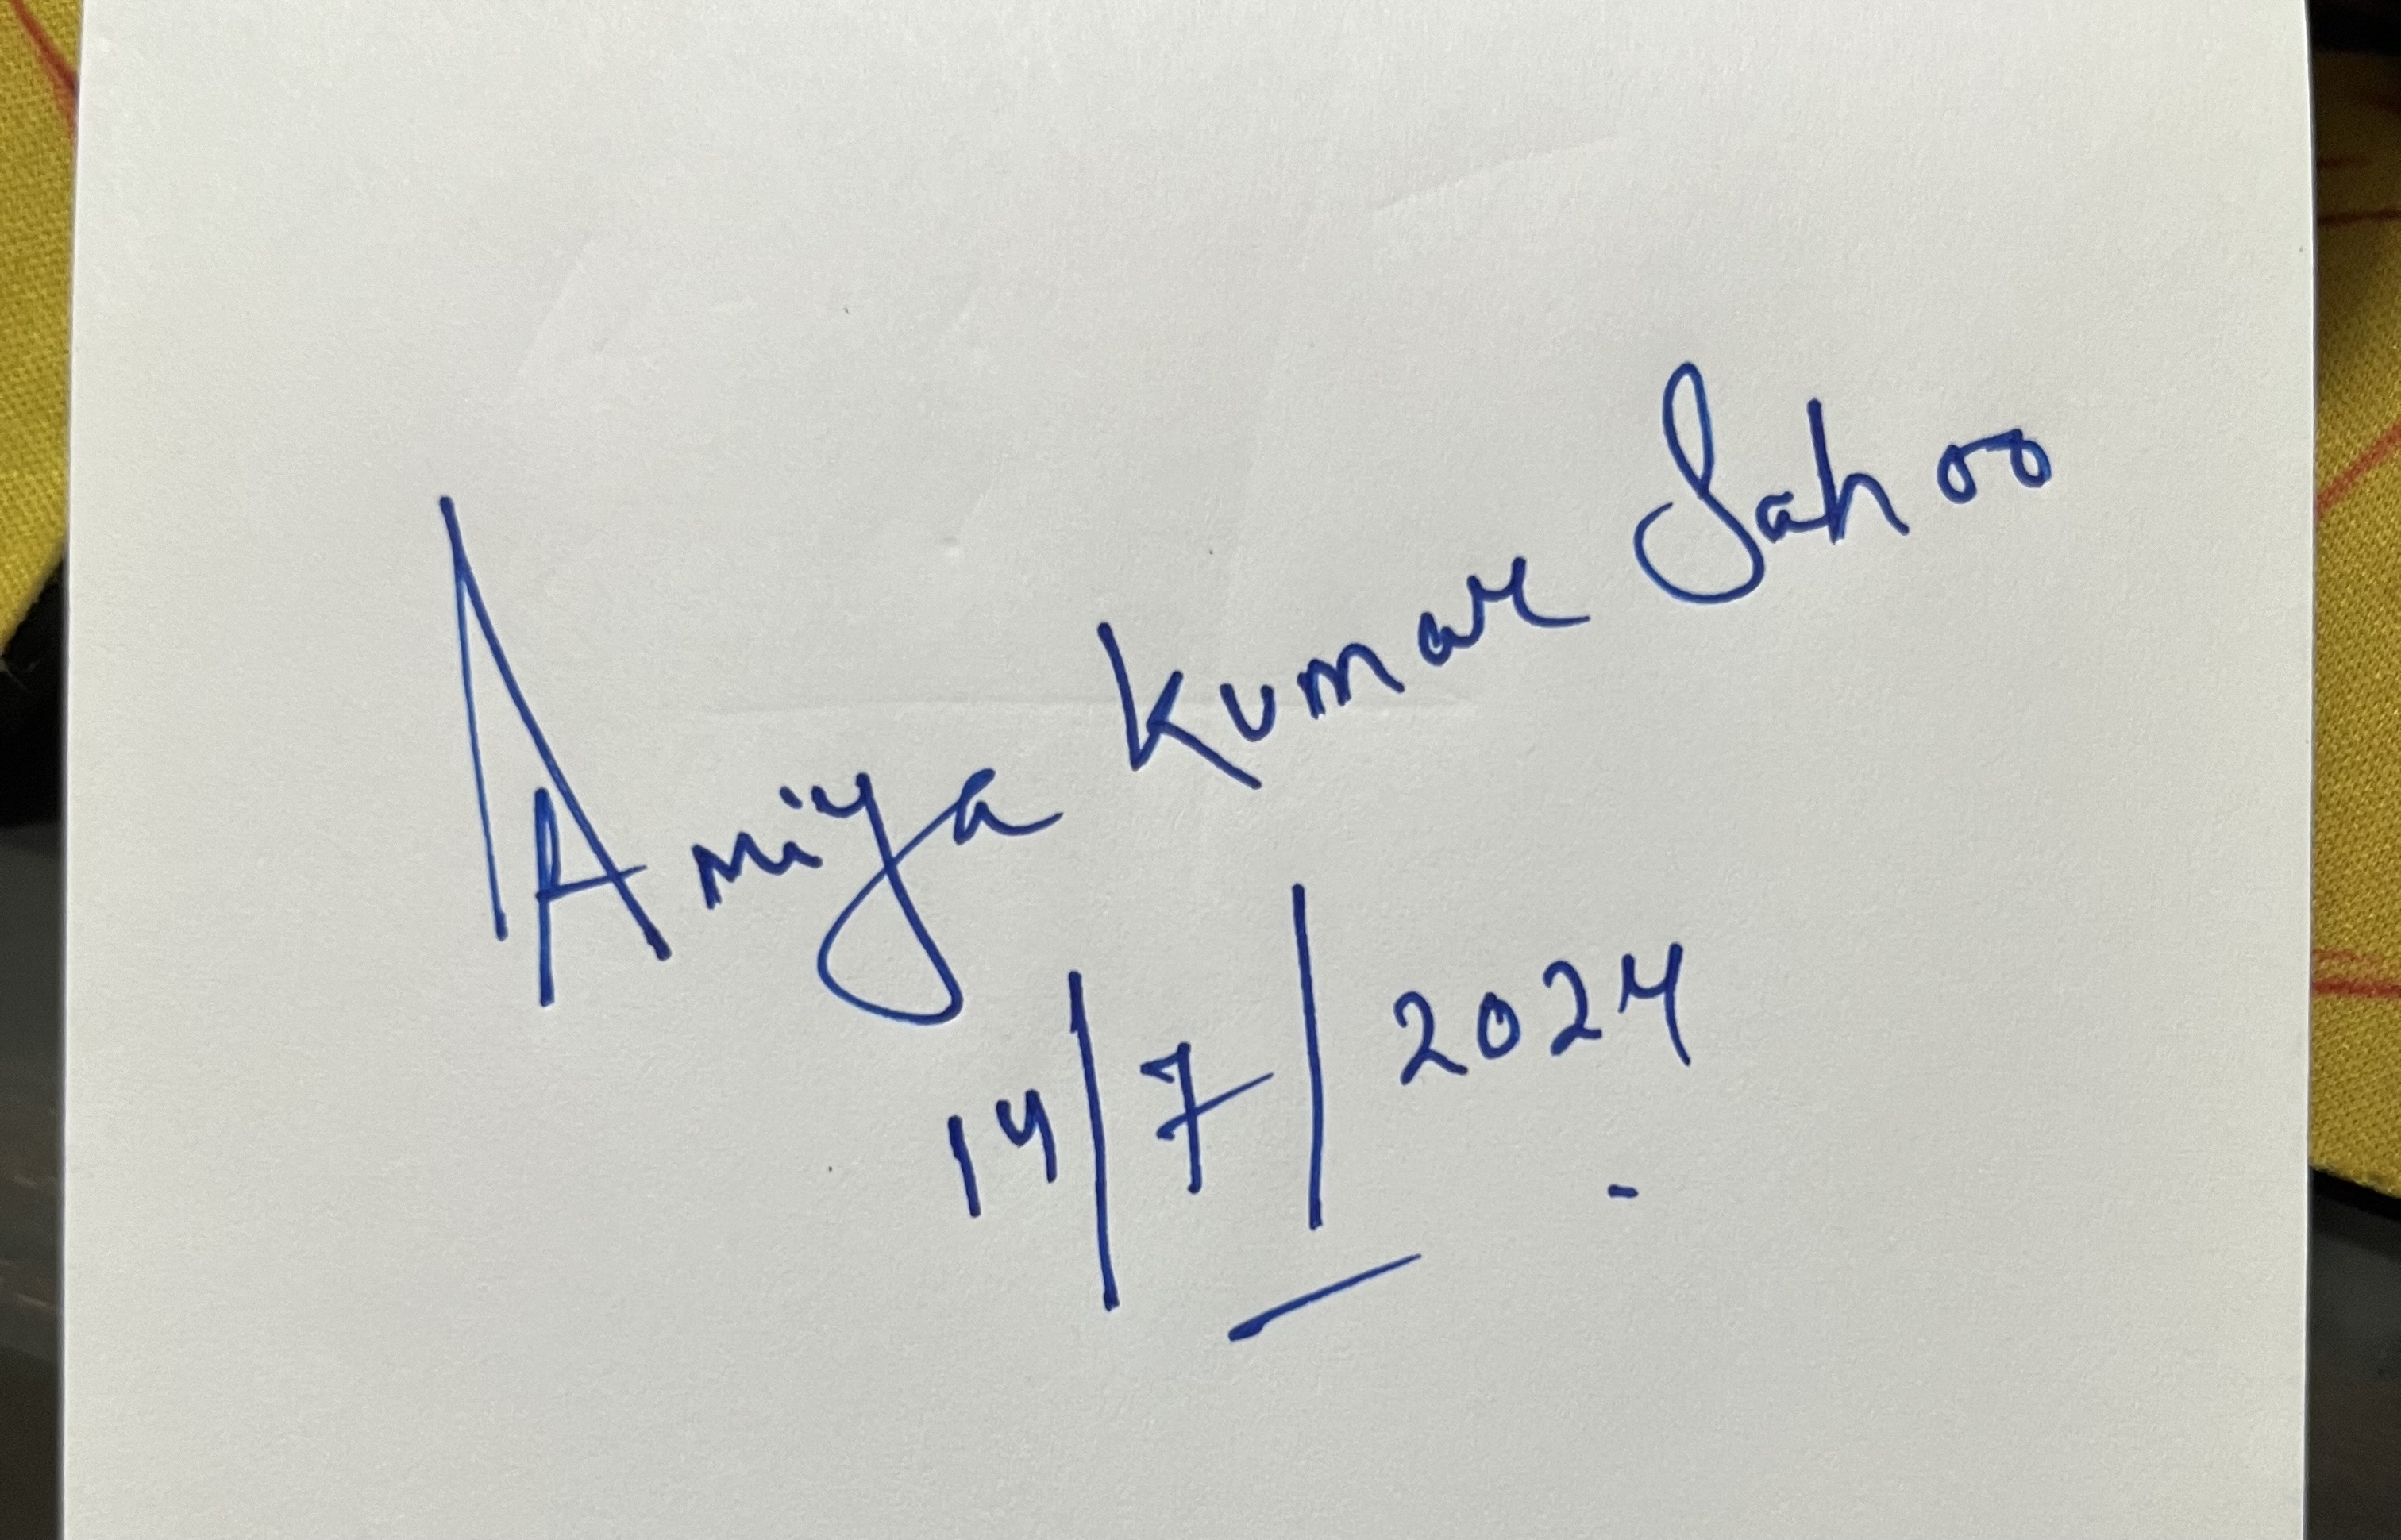 Amiya Kumar Sahoo
14/7/2024